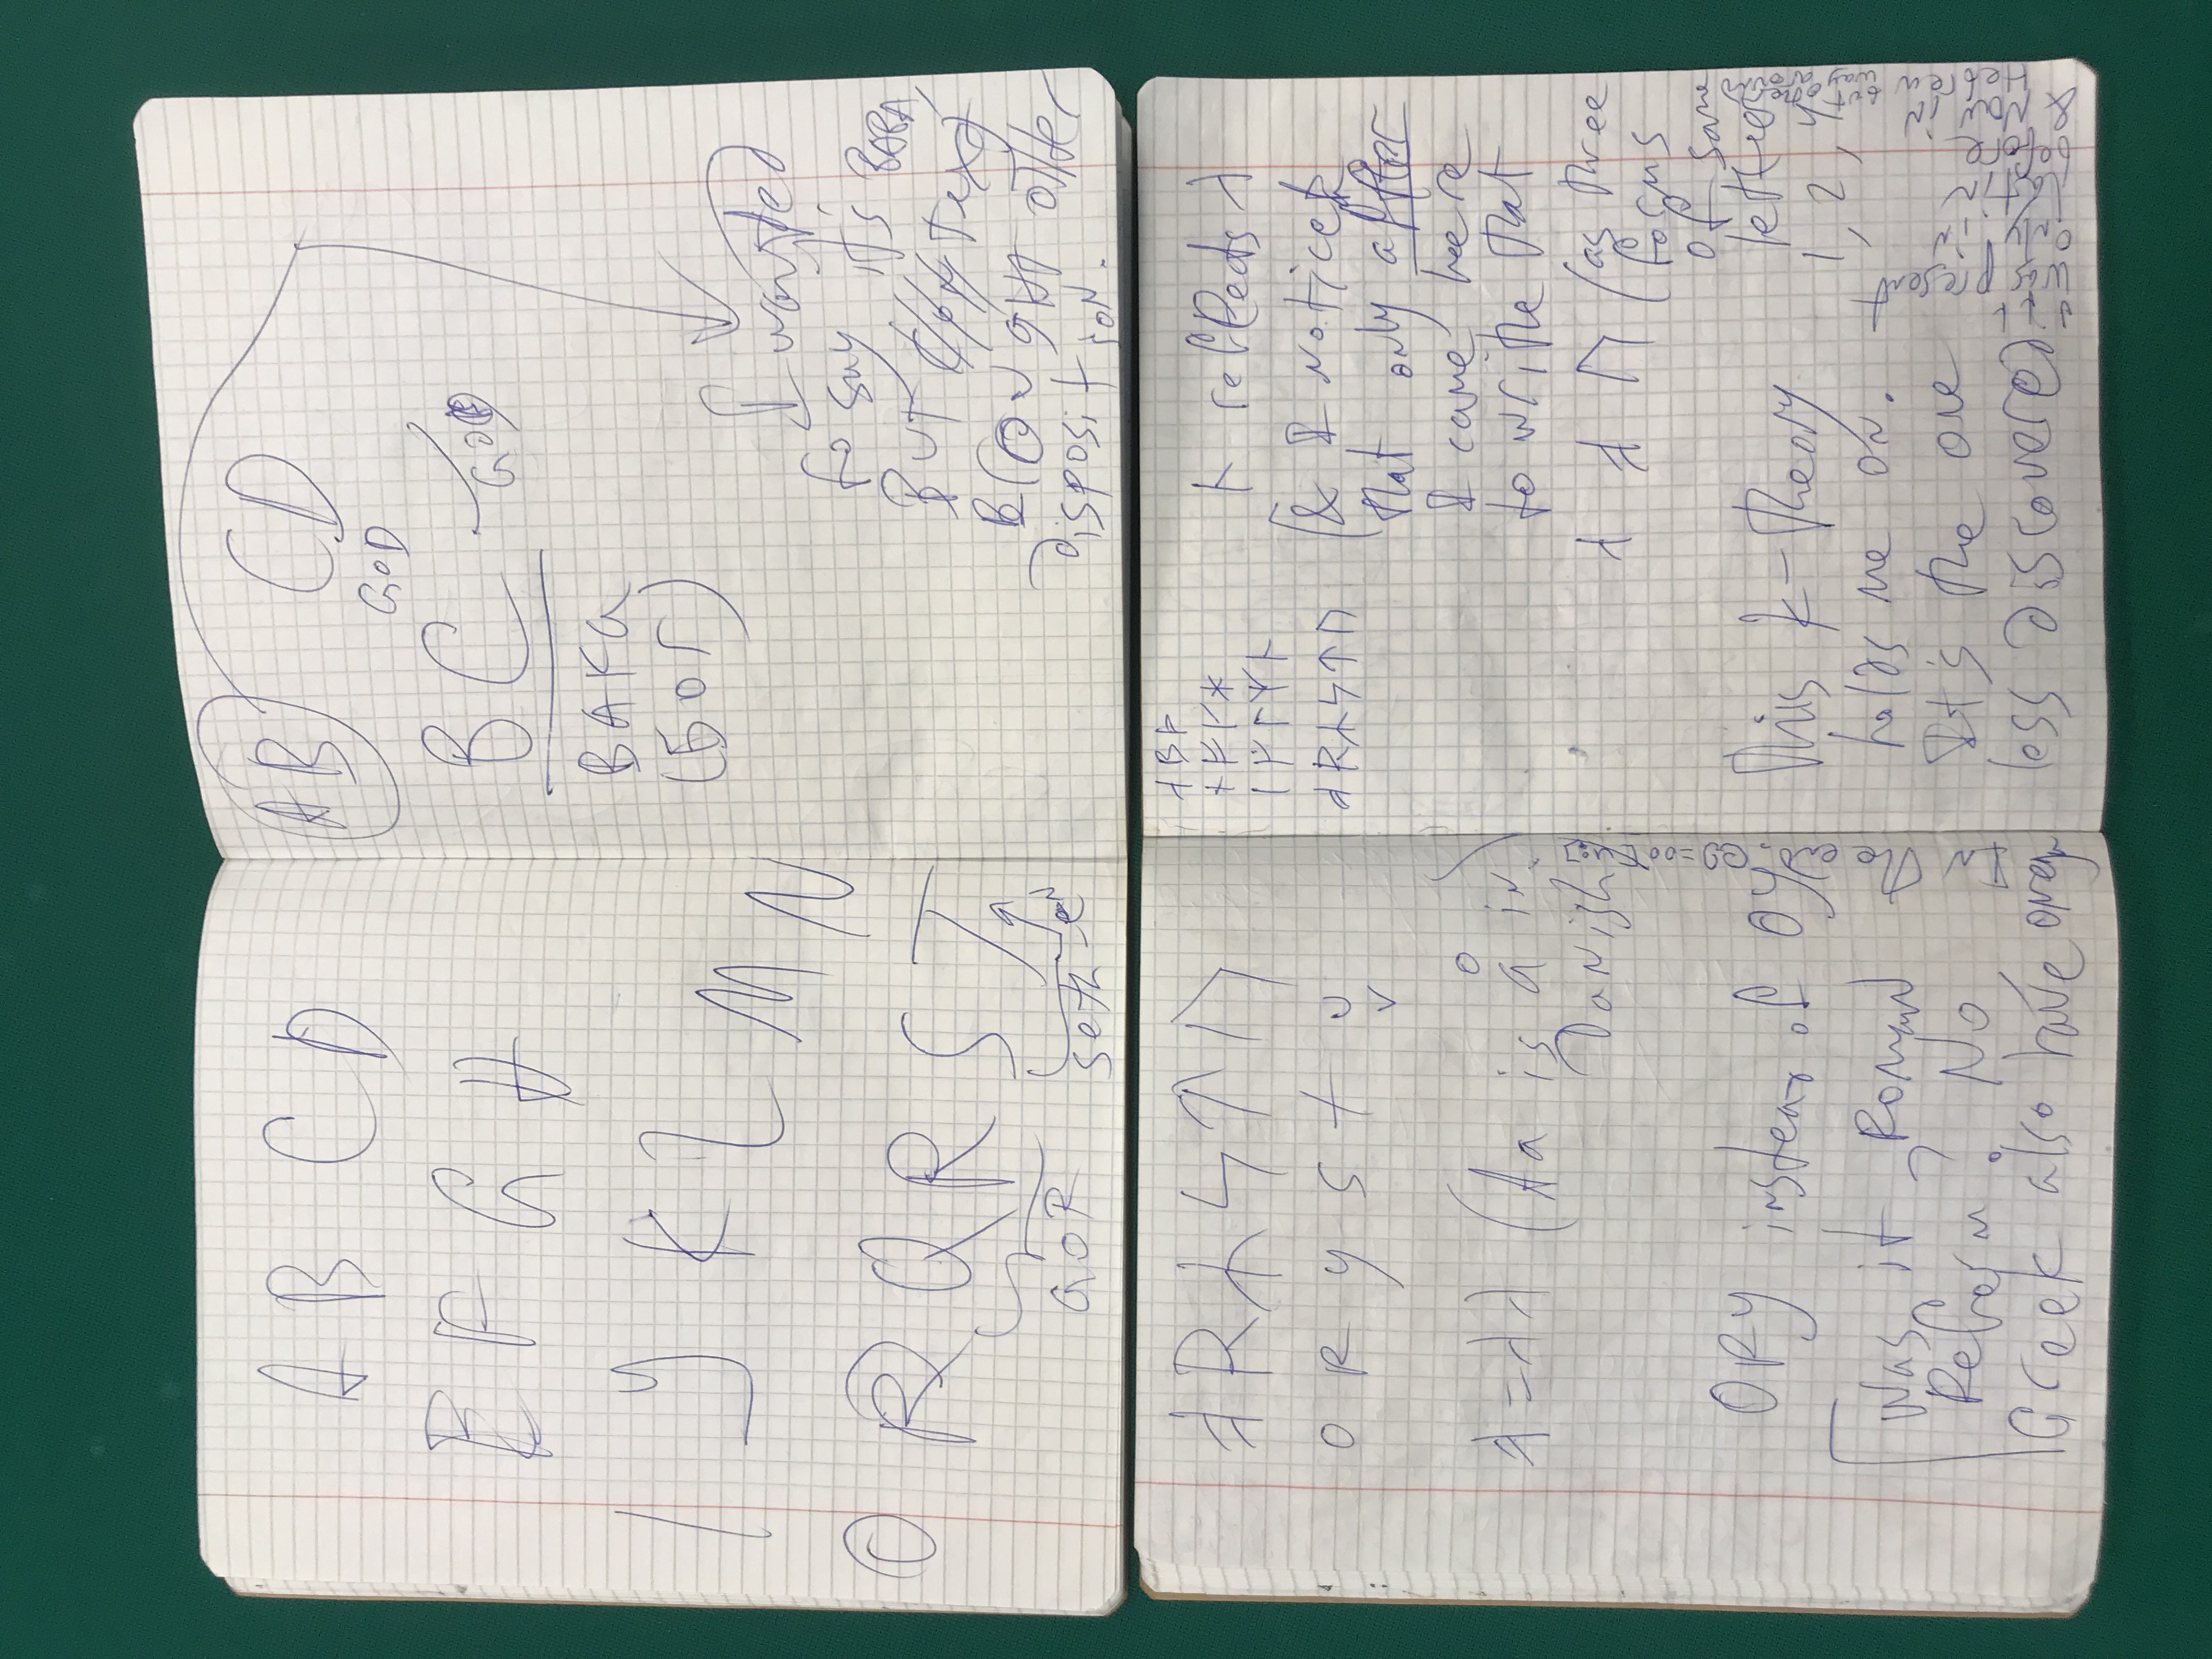 A B C D
E F G H
I Y K L M N
O R Q R S T
GOR
Seth-en
AB CD
GOD
BC - GOD
BAKA
(БОГ)
I wanted
to say it's BABA,
BUT CONTEXT
BROUGHT OTHER
disposition.
O R Y S T U
V
(Aa is å in
Danish)
ORY instead of OY
Was it Roman
Reform? No,
Greek also have omega
In the end.
reflects
(& I noticed
that only after
I came here
to write that
(as three
forms
of same
letter
1, 2, Y
This k-theory
holds me on.
It's the one
less discovered:
was present
only in
latin
before
& Now in
Hebrew but other
way around